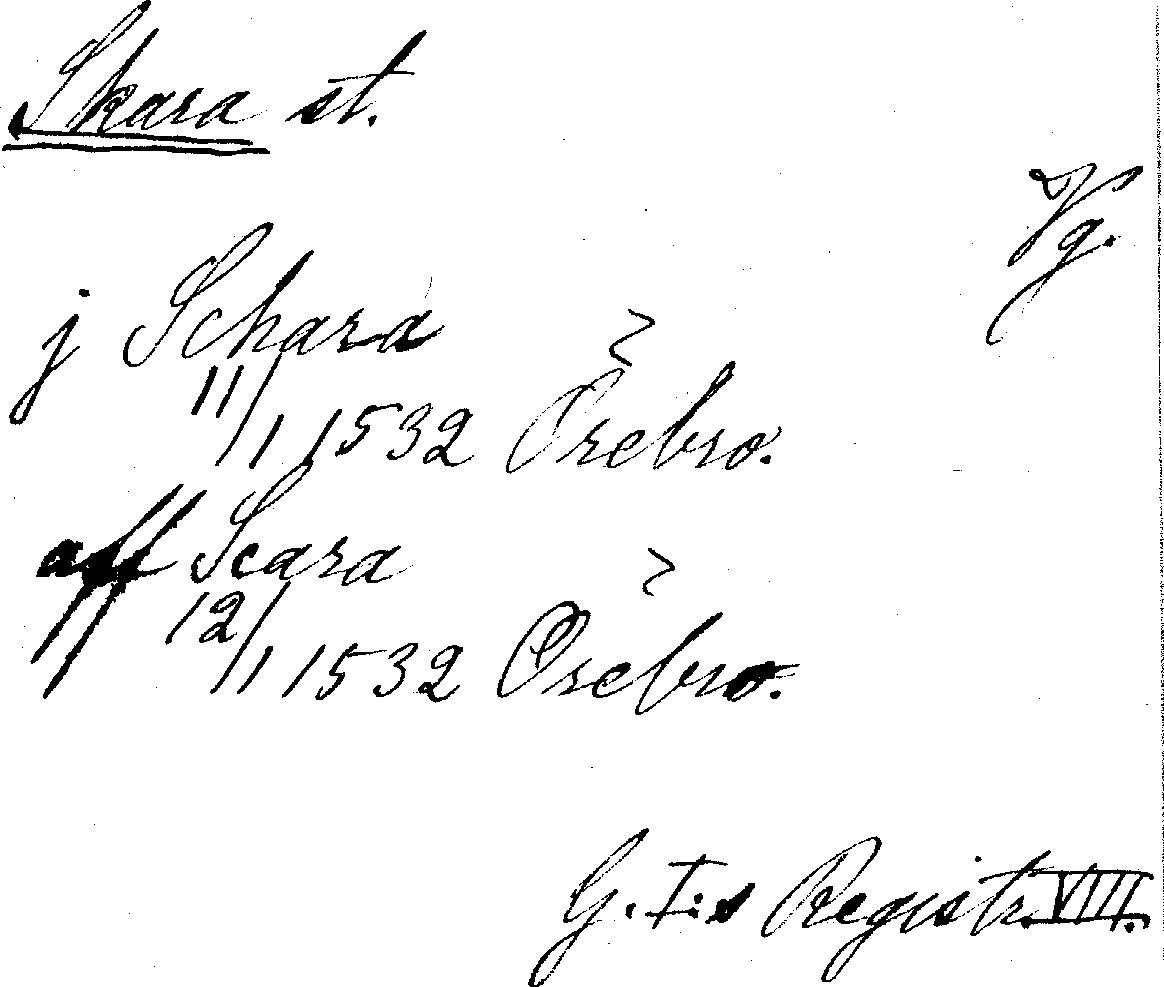 Skara st.
Vg.
j Schara
11/1 1532 Örebro.
aff Scara
12/1 1532 Örebro.
G. I:s Registr. VIII.